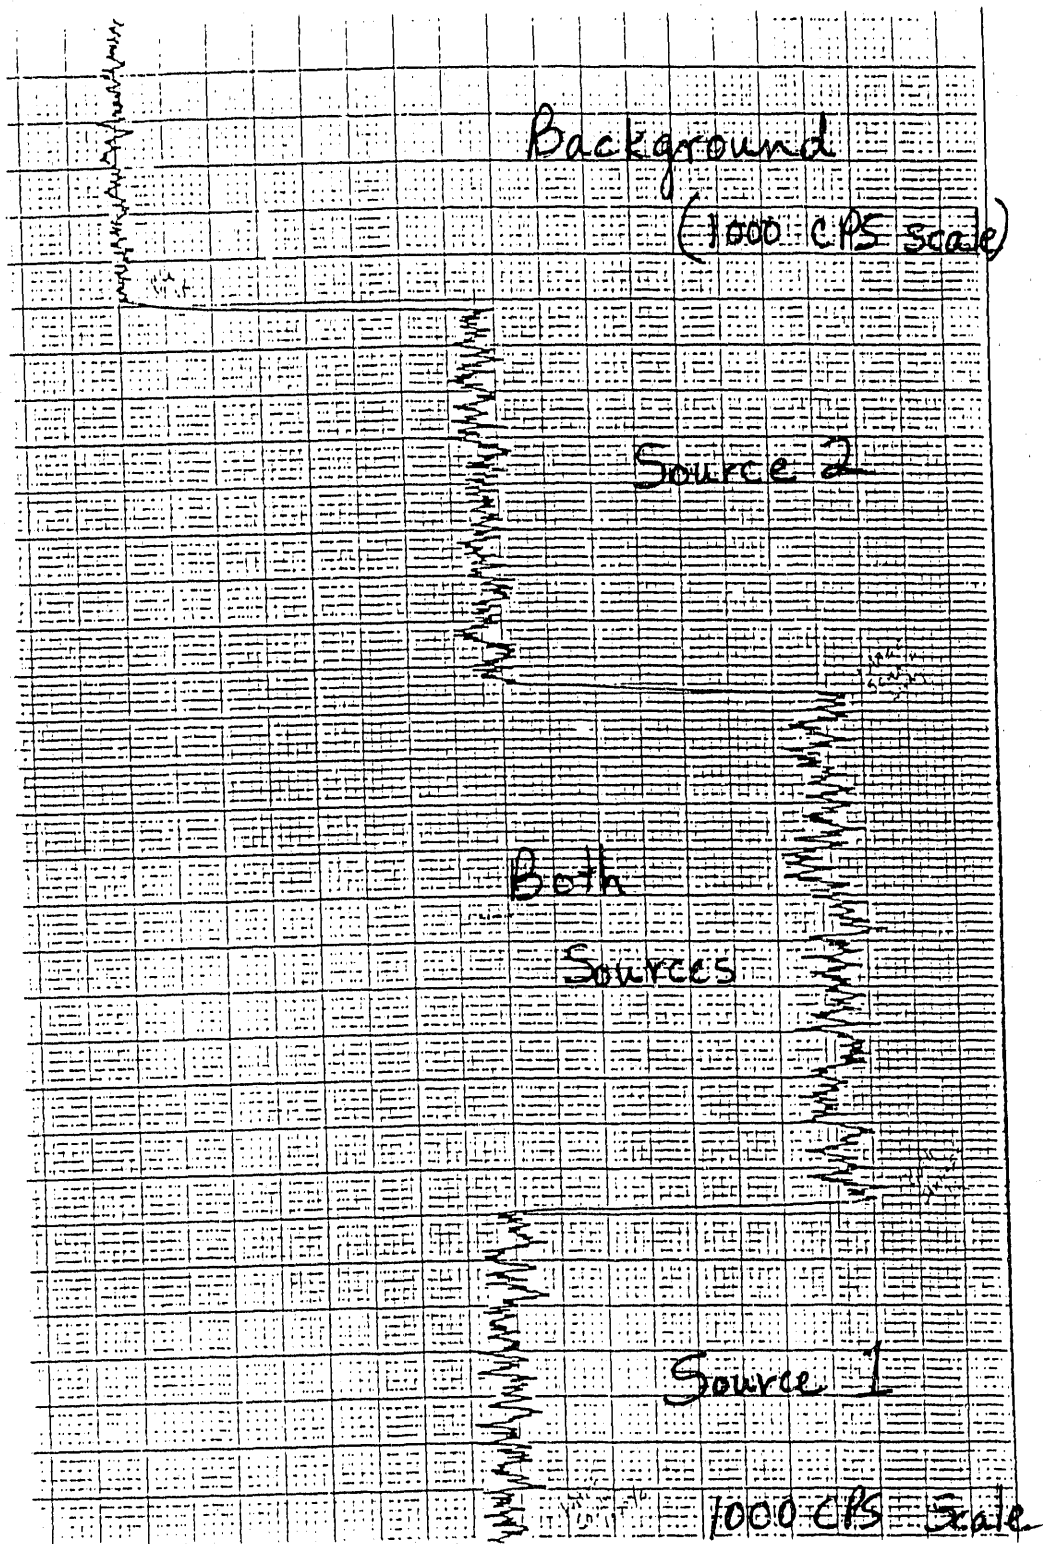 Background
(1000 CPS scale)
Source 2
Both
Sources
Source 1
1000 CPS Scale